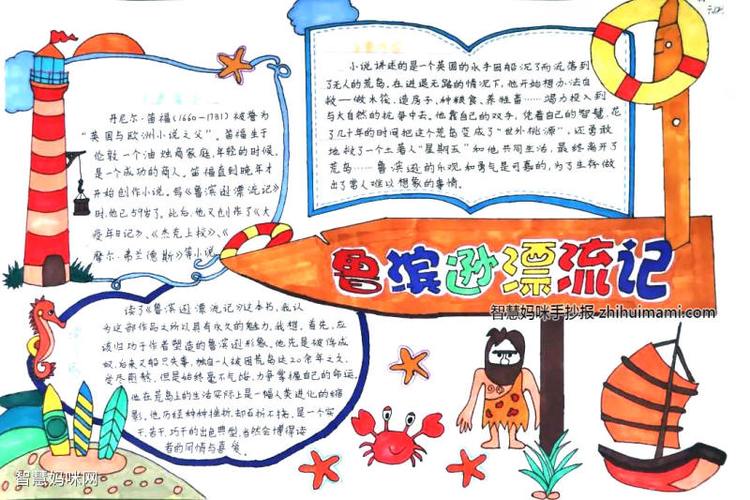 丹尼尔·笛福(1660-1731)被誉为
"英国与欧洲小说之父"。笛福生于
伦敦一个油烛商家庭,年轻的时候,
是一个成功的商人。笛福直到晚年才
开始创作小说,写《鲁滨逊漂流记》
时,他已59岁了。此后,他又创作了《大
疫年日记》、《杰克上校》、《
摩尔·弗兰德斯》等小说
小说讲述的是一个英国的水手因船沉了而流落到
了无人的荒岛,在进退无路的情况下,他开始想办法自
救——做木筏、造房子、种粮食、养牲畜……竭力投入到
与大自然的抗争中去,他靠自己的双手,凭着自己的智慧,花
了几十年的时间把这个荒岛变成了"世外桃源",还勇敢
地救了一个土著人"星期五"和他共同生活,最终离开了
荒岛……鲁滨逊的乐观和勇气是可嘉的,为了生存做
出了常人难以想象的事情。
鲁滨逊漂流记
智慧妈咪手抄报 zhihuimami.com
读了《鲁滨逊漂流记》这本书,我认
为这部作品之所以具有永久的魅力,我想,首先,应
该归功于作者塑造的鲁滨逊形象。他先是被俘成
奴,后来又船只失事,独自一人被困荒岛达20余年之久,
受尽煎熬,但是始终毫不气馁,力争掌握自己的命运。
他在荒岛上的生活实际上是一幅人类进化的缩
影,他历经种种挫折,却百折不挠,是一个实
干、苦干、巧干的出色典型,当然会博得读
者的同情与喜爱。
智慧妈咪网